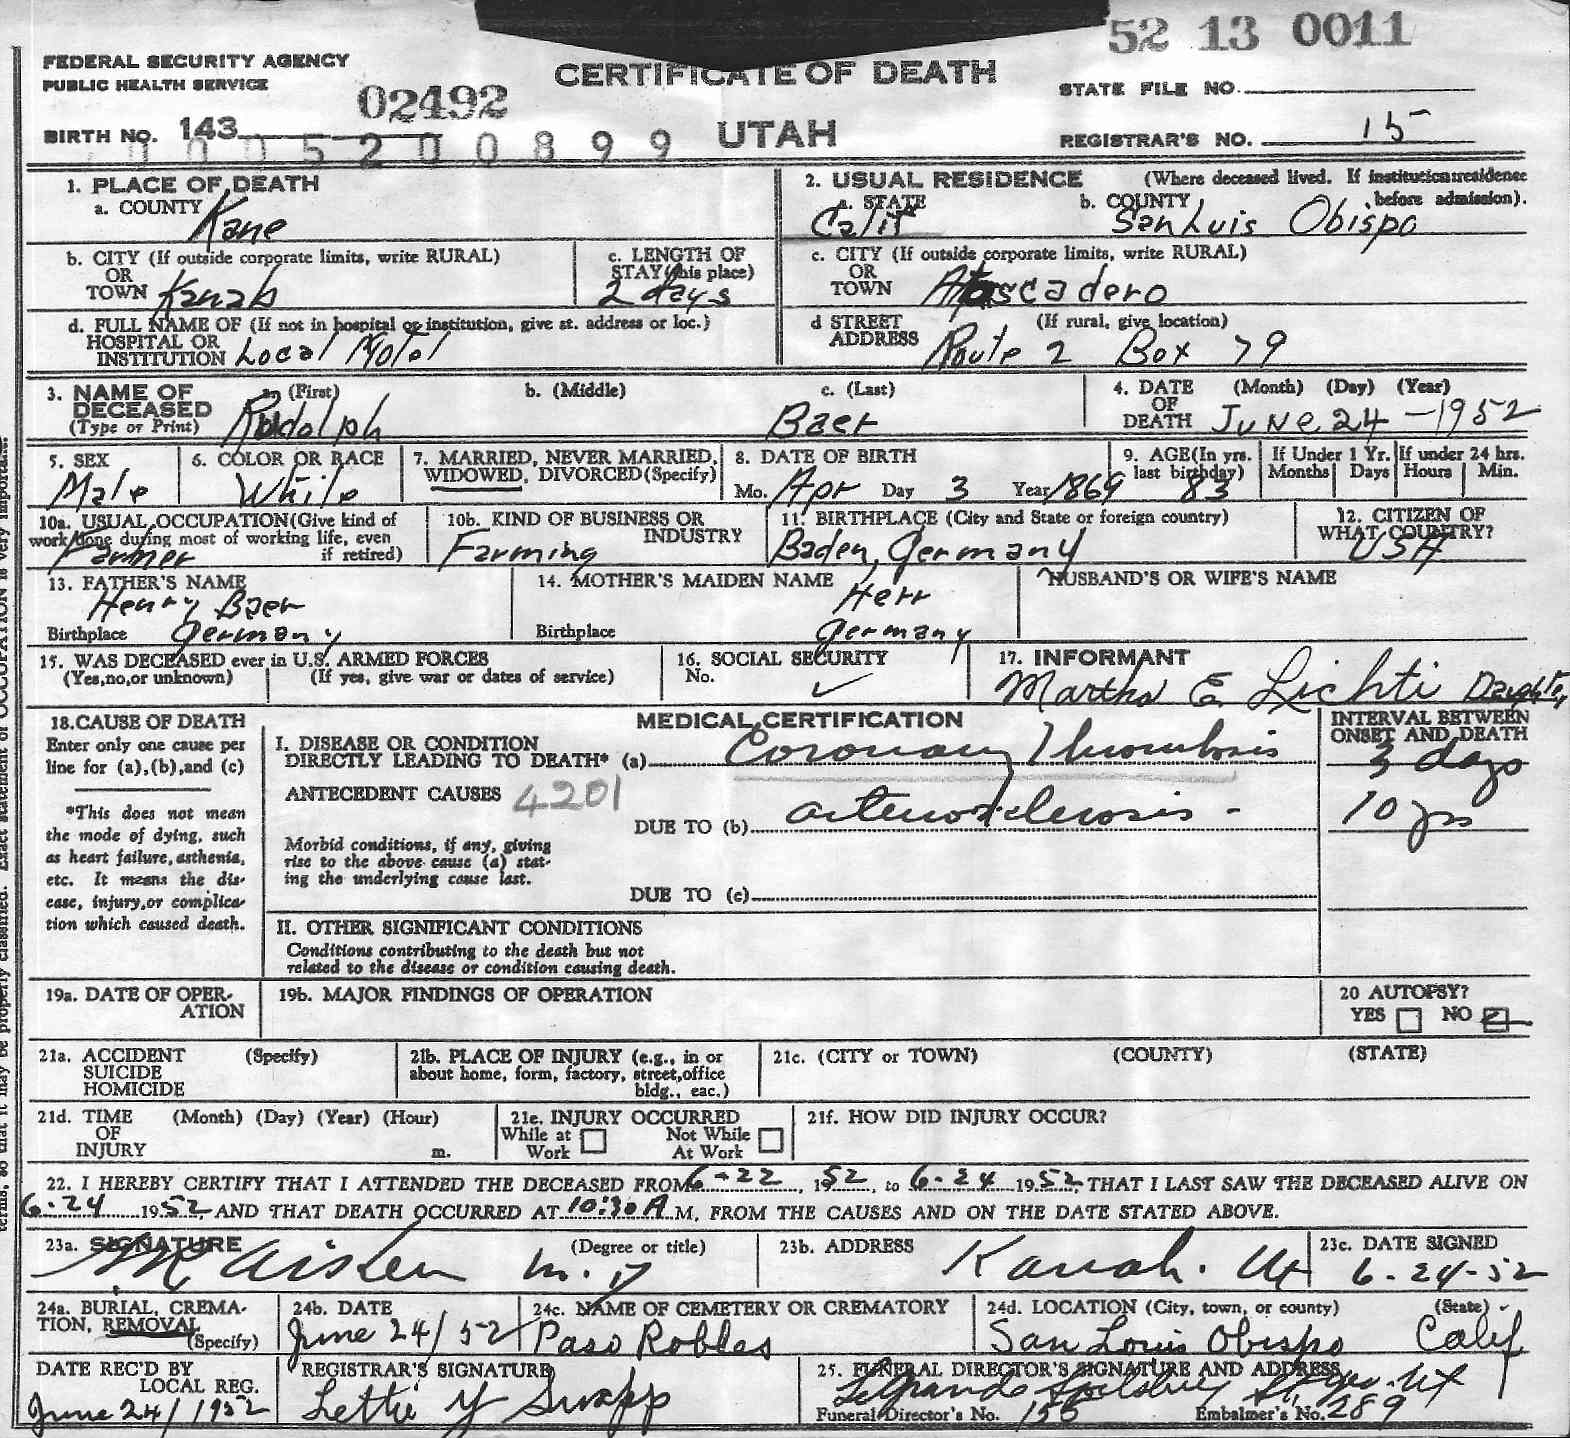 52 13 0011
FEDERAL SECURITY AGENCY
PUBLIC HEALTH SERVICE
CERTIFICATE OF DEATH
STATE FILE NO.
02492
BIRTH NO. 143
UTAH
REGISTRAR'S NO. 15
0005200899
1. PLACE OF DEATH
a. COUNTY Kane
2. USUAL RESIDENCE (Where deceased lived. If institution: residence before admission).
a. STATE Calif b. COUNTY San Luis Obispo
b. CITY (If outside corporate limits, write RURAL) OR TOWN Kanab
c. LENGTH OF STAY (this place) 2 days
c. CITY (If outside corporate limits, write RURAL) OR TOWN Atascadero
d. FULL NAME OF (If not in hospital or institution, give st. address or loc.) HOSPITAL OR INSTITUTION Local Motel
d STREET ADDRESS (If rural, give location) Route 2 Box 79
3. NAME OF DECEASED (Type or Print)
a. (First) Rudolph b. (Middle) c. (Last) Baer
4. DATE OF DEATH (Month) (Day) (Year) June 24-1952
5. SEX Male
6. COLOR OR RACE White
7. MARRIED, NEVER MARRIED, WIDOWED, DIVORCED (Specify)
8. DATE OF BIRTH Mo. Apr Day 3 Year 1869
9. AGE (In yrs. last birthday) 83
If Under 1 Yr. Months Days
If under 24 hrs. Hours Min.
10a. USUAL OCCUPATION (Give kind of work done during most of working life, even if retired) Farmer
10b. KIND OF BUSINESS OR INDUSTRY Farming
11. BIRTHPLACE (City and State or foreign country) Baden, Germany
12. CITIZEN OF WHAT COUNTRY? USA
13. FATHER'S NAME Henry Baer
Birthplace Germany
14. MOTHER'S MAIDEN NAME Herr
Birthplace Germany
HUSBAND'S OR WIFE'S NAME
15. WAS DECEASED ever in U.S. ARMED FORCES
(Yes, no, or unknown) (If yes, give war or dates of service)
16. SOCIAL SECURITY No.
17. INFORMANT Martha E. Lichti Daughter
18. CAUSE OF DEATH
Enter only one cause per line for (a), (b), and (c)
*This does not mean the mode of dying, such as heart failure, asthenia, etc. It means the disease, injury, or complication which caused death.
MEDICAL CERTIFICATION
INTERVAL BETWEEN ONSET AND DEATH
I. DISEASE OR CONDITION DIRECTLY LEADING TO DEATH* (a) Coronary Thrombosis 3 days
ANTECEDENT CAUSES 4201
DUE TO (b) arteriosclerosis - 10 yrs
Morbid conditions, if any, giving rise to the above cause (a) stating the underlying cause last.
DUE TO (c)
II. OTHER SIGNIFICANT CONDITIONS
Conditions contributing to the death but not related to the disease or condition causing death.
19a. DATE OF OPERATION
19b. MAJOR FINDINGS OF OPERATION
20 AUTOPSY?
YES NO
21a. ACCIDENT SUICIDE HOMICIDE (Specify)
21b. PLACE OF INJURY (e.g., in or about home, form, factory, street, office bldg., eac.)
21c. (CITY or TOWN) (COUNTY) (STATE)
21d. TIME OF INJURY (Month) (Day) (Year) (Hour) m.
21e. INJURY OCCURRED
While at Work Not While At Work
21f. HOW DID INJURY OCCUR?
22. I HEREBY CERTIFY THAT I ATTENDED THE DECEASED FROM 6-22, 1952, to 6-24 1952, THAT I LAST SAW THE DECEASED ALIVE ON
6-24 1952, AND THAT DEATH OCCURRED AT 10:30 A M, FROM THE CAUSES AND ON THE DATE STATED ABOVE.
23a. SIGNATURE (Degree or title) Aiken M.D
23b. ADDRESS Kanab. Ut
23c. DATE SIGNED 6-24-52
24a. BURIAL, CREMATION, REMOVAL (Specify)
24b. DATE June 24/52
24c. NAME OF CEMETERY OR CREMATORY Paso Robles
24d. LOCATION (City, town, or county) (State) San Louis Obispo Calif
DATE REC'D BY LOCAL REG. June 24/1952
REGISTRAR'S SIGNATURE Lettie Y Swapp
25. FUNERAL DIRECTOR'S SIGNATURE AND ADDRESS
Funeral Director's No. 155 Embalmer's No. 289